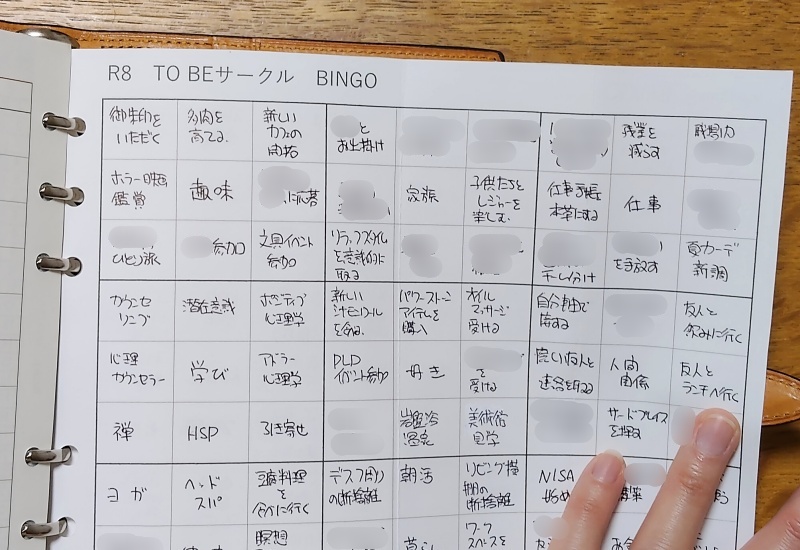 R8 TO BEサークル BINGO
御朱印を
いただく
多肉を
育てる
新しい
カフェの
開拓
と
お出掛け
残業を
減らす
戦闘力
ホラー映画
鑑賞
趣味
に応募
家族
子供たちと
レジャーを
楽しむ
仕事手帳
本革にする
仕事
ひとり旅
参加
文具イベント
参加
リラックスタイム
を意識的に
取る
を手放す
夏カーデ
新調
カウンセ
リング
潜在意識
ポジティブ
心理学
新しい
パワーストーン
アイテムを
購入
オイル
マッサージ
受ける
自分軸で
友人と
飲みに行く
心理
カウンセラー
学び
アドラー
心理学
イベント参加
好き
を
受ける
良い友人と
連絡を取る
人間
関係
友人と
ランチへ行く
禅
HSP
引き寄せ
岩盤浴
温泉
美術館
見学
サードプレイス
を探す
ヨガ
ヘッド
スパ
を
食べに行く
デスク周り
の断捨離
朝活
リビング横
棚の
断捨離
NISA
始め
瞑想
ワーク
スペースを